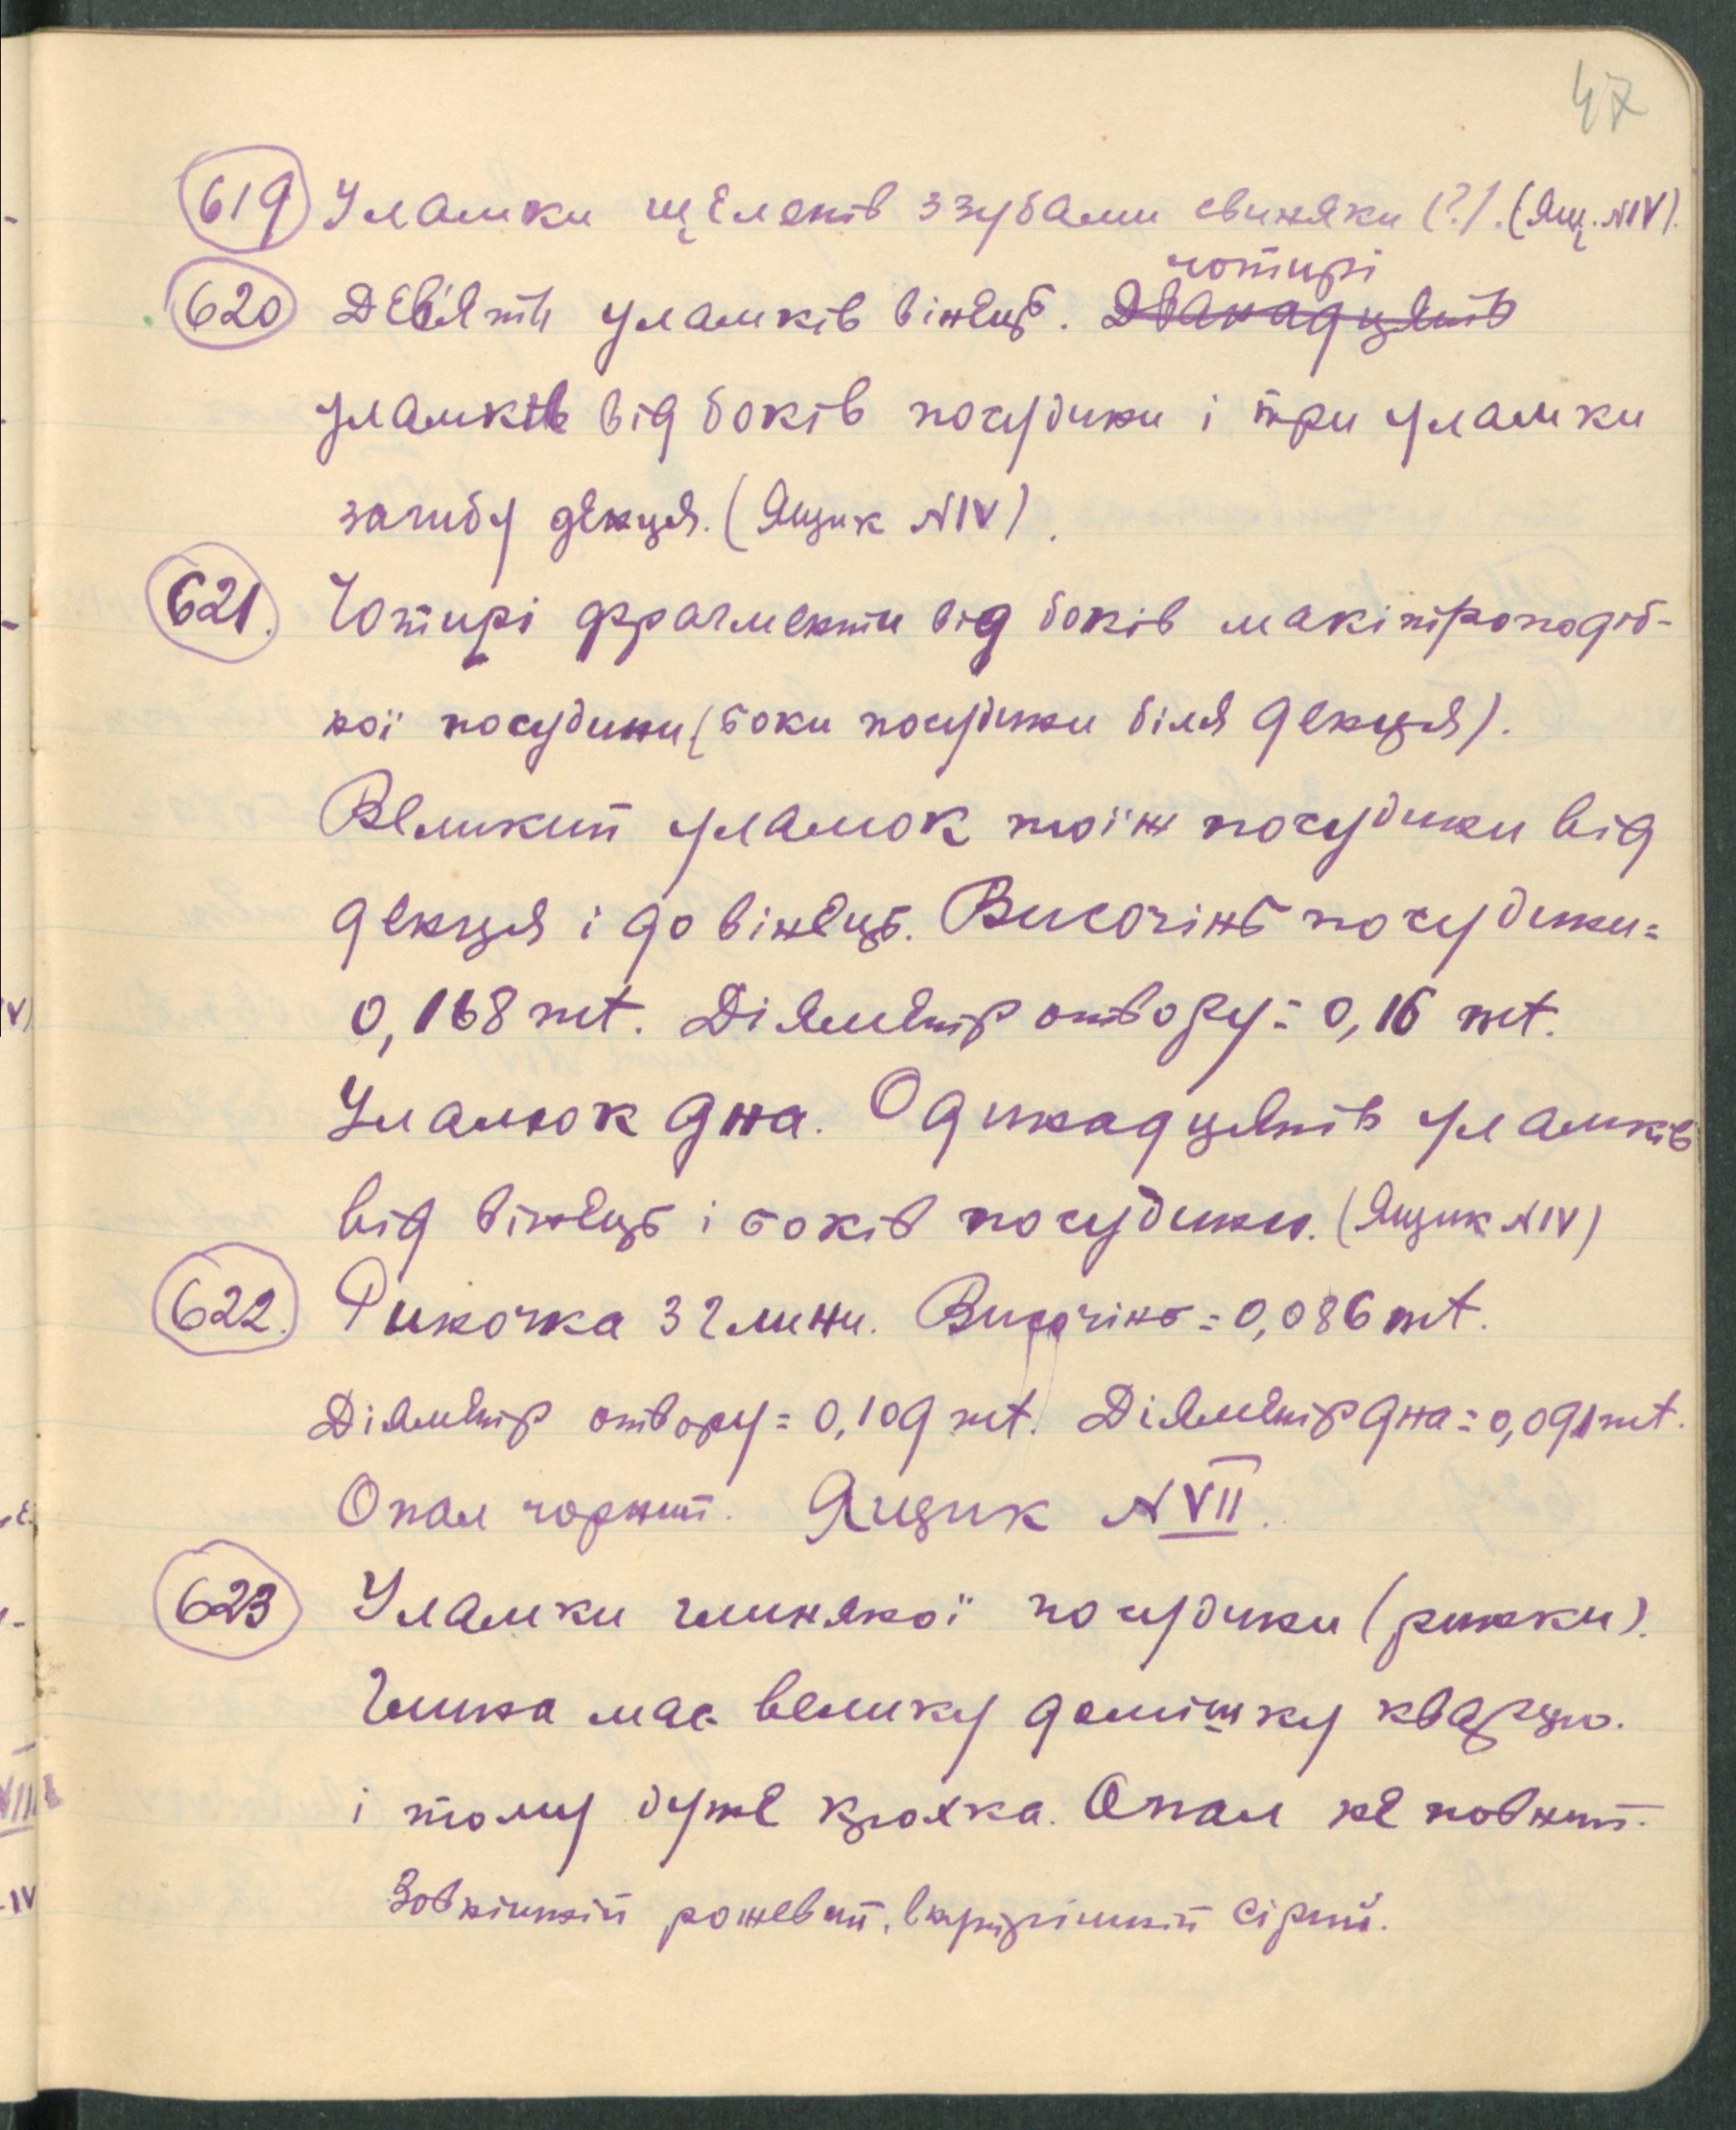 47
619 Уламки щелепів з зубами свиняки (?). (Ящ. №IV).
чотирі
620 Девʼять уламків вінець. ~~Дванадцять~~
уламків від боків посудини і три уламки
загибу денця. (Ящик №IV).
621. Чотирі фрагменти від боків макітроподіб-
ної посудини (боки посудини біля денця).
Великий уламок тої ж посудини від
денця і до вінець. Височінь посудини =
0,168 mt. Діяметр отвору = 0,16 mt.
Уламок дна. Одинадцять уламків
від вінець і боків посудини. (Ящик №IV)
622. Риночка з глини. Височінь = 0,086 mt.
Діяметр отвору = 0,109 mt. Діяметр дна = 0,091 mt.
Опал чорний. Ящик № VII.
623 Уламки глиняної посудини (ринки).
Глина має велику домішку кварцю.
і тому дуже крохка. Опал не повний.
Зовнішній рожевий, внутрішній сірий.